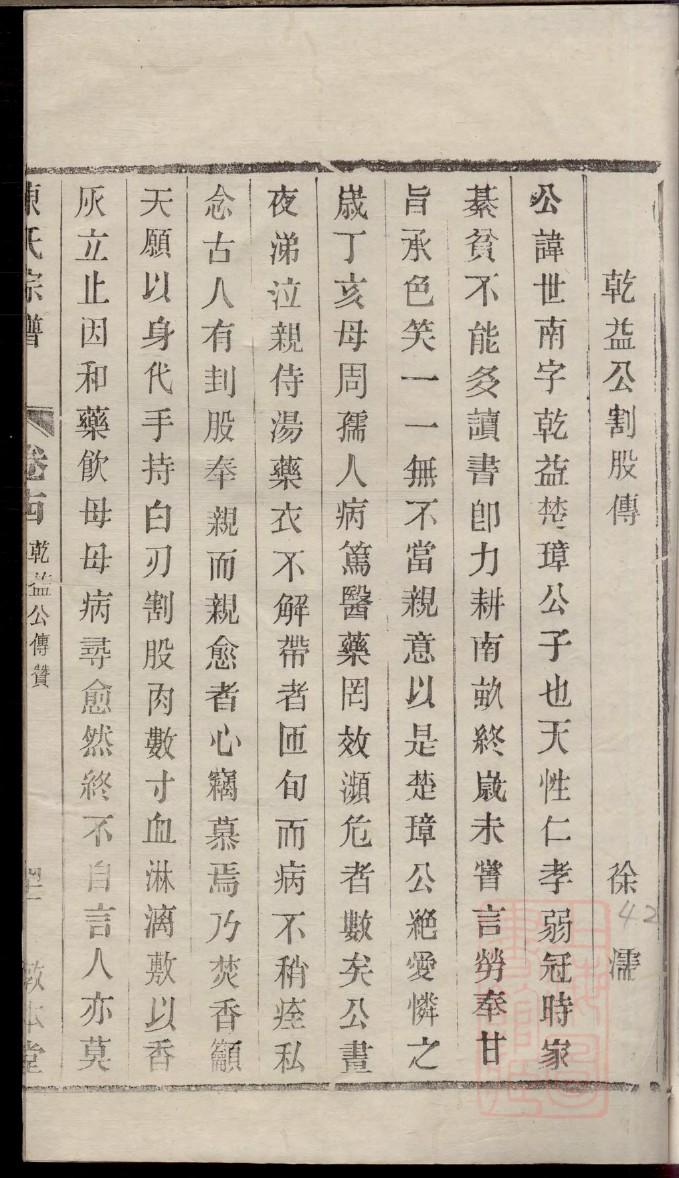 乾益公割股傳　徐濡
公諱世南字乾益楚璋公子也天性仁孝弱冠時家
綦貧不能多讀書卽力耕南畝終歲未嘗言勞奉甘
旨承色笑一一無不當親意以是楚璋公絕愛憐之
歲丁亥母周孺人病篤醫藥罔效瀕危者數矣公晝
夜涕泣親侍湯藥衣不解帶者匝旬而病不稍痊私
念古人有刲股奉親而親愈者心竊慕焉乃焚香籲
天願以身代手持白刃割股肉數寸血淋漓敷以香
灰立止因和藥飲母母病尋愈然終不自言人亦莫
陳氏宗譜　卷　乾益公傳贊　敦本堂
42